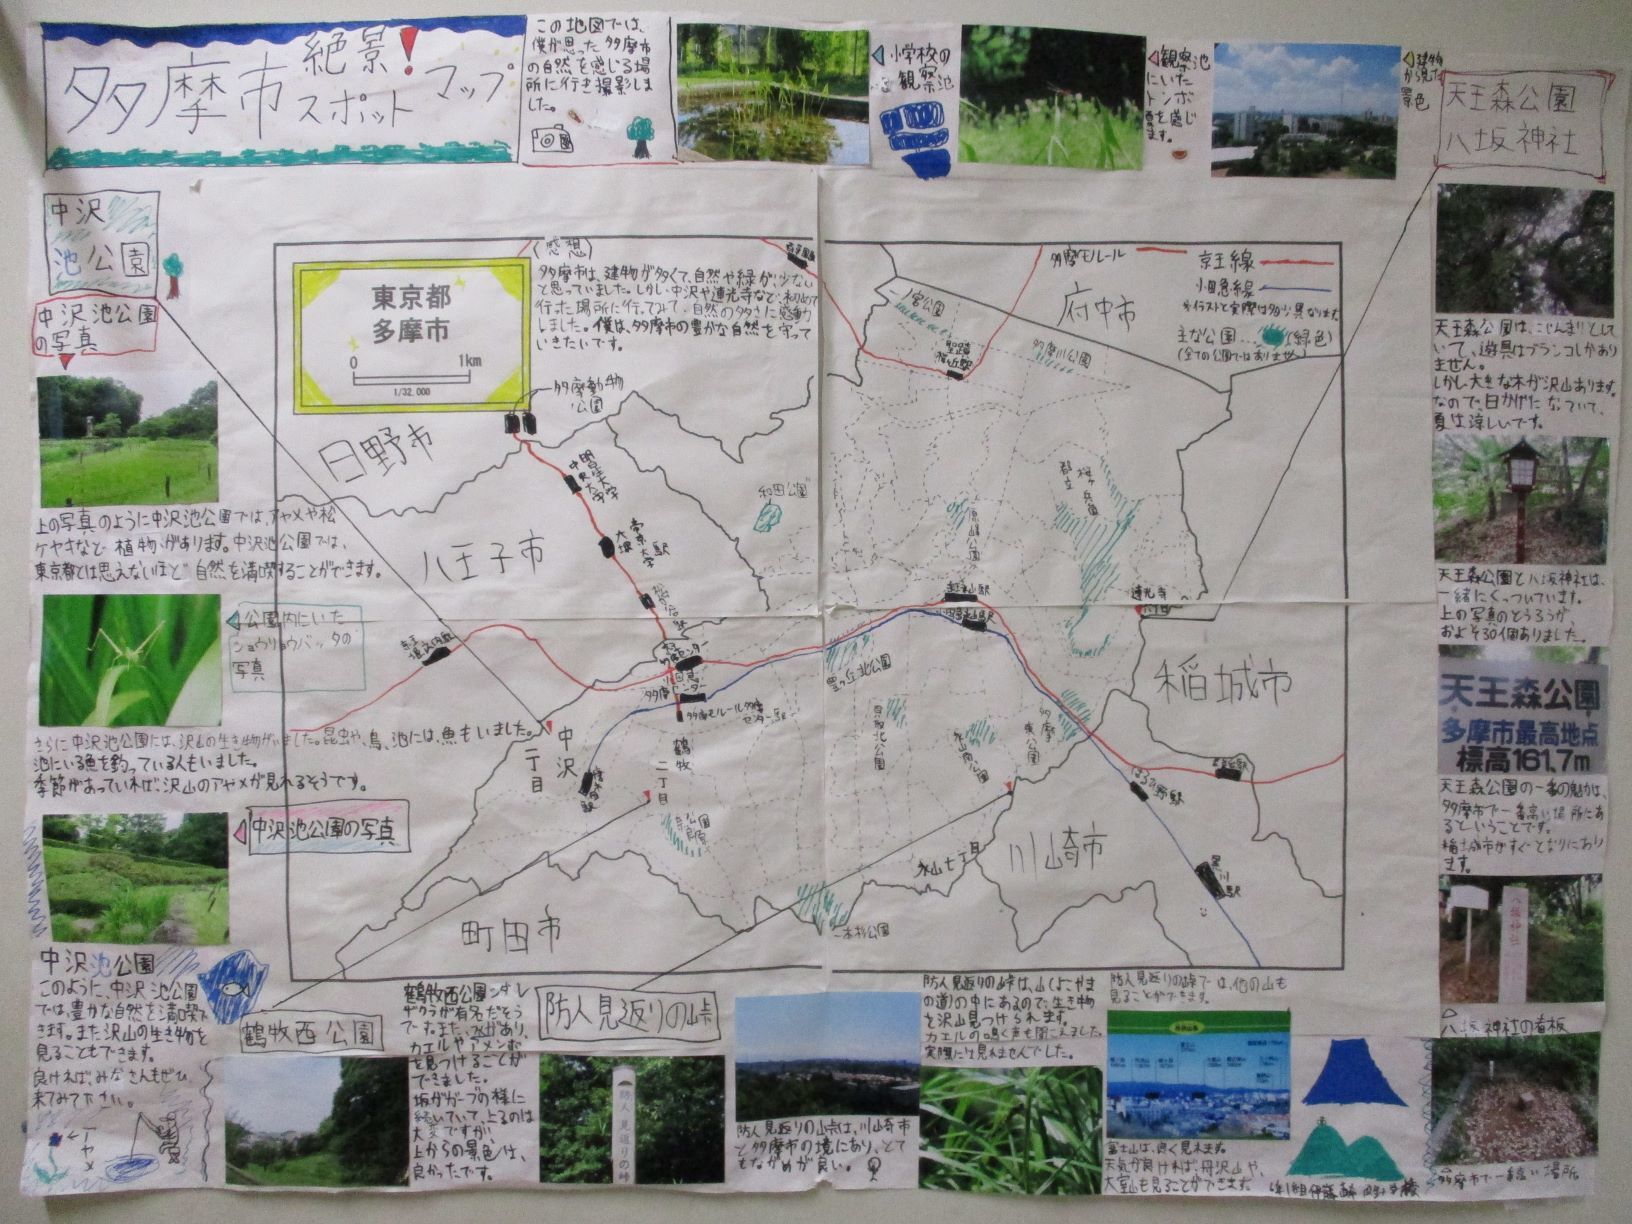 多摩市絶景!スポットマップ
この地図では、
僕が思った多摩市
の自然を感じる場
所に行き撮影しま
した。
小学校の
観察池
観察池
にいた
トンボ
夏を感じ
ます。
建物
から見た
景色
天王森公園
八坂神社
中沢
池公園
中沢池公園
の写真
上の写真のように中沢池公園では、アヤメや松
ケヤキなど植物があります。中沢池公園では、
東京都とは思えないほど自然を満喫することができます。
公園内にいた
ショウリョウバッタの
写真
さらに中沢池公園には、沢山の生き物がいました。昆虫や、鳥、池には、魚もいました。
池にいる魚を釣っている人もいました。
季節があっていれば、沢山のアヤメが見れるそうです。
中沢池公園の写真
中沢池公園
このように、中沢池公園
では、豊かな自然を満喫で
きます。また沢山の生き物を
見ることもできます。
良ければ、みなさんもぜひ
来てみて下さい。
アヤメ
東京都
多摩市
0 1km
1/32,000
(感想)
多摩市は、建物が多くて、自然や緑が、少ない
と思っていました。しかし中沢や連光寺など、初めて
行った場所に行ってみて、自然の多さに感動
しました。僕は、多摩市の豊かな自然を守って
いきたいです。
多摩モルール
京王線
小田急線
※イラストと実際は多少異なります
主な公園…(緑色)
(全ての公園ではありません)
府中市
一ノ宮公園
聖蹟
桜ヶ丘駅
多摩川公園
多摩動物
公園
日野市
八王子市
中央大学
明星大学
大塚
帝京大学駅
松が谷駅
和田公園
原峰公園
都立
桜ヶ丘公園
京王永山駅
小田急永山駅
連光寺
六丁目
稲城市
京王
堀之内駅
多摩センター
多摩モルール多摩
センター駅
豊ヶ丘北公園
貝取北公園
永山南公園
多摩
東公園
中沢
二丁目
鶴牧
二丁目
奈良原
公園
はるひ野駅
黒川駅
若葉台駅
永山七丁目
川崎市
町田市
一本杉公園
天王森公園は、こじんまりとして
いて、遊具はブランコしかあり
ません。
しかし大きな木が沢山あります。
なので、日かげになっていて、
夏は涼しいです。
天王森公園と八坂神社は、
一緒にくっついています。
上の写真のとうろうが、
およそ30個ありました。
天王森公園
多摩市最高地点
標高161.7m
天王森公園の一番の魅力は、
多摩市で一番高い場所にあ
るということです。
稲城市がすぐとなりにあり
ます。
八坂神社
八坂神社の看板
多摩市で一番高い場所
鶴牧西公園
鶴牧西公園はシダレ
ザクラが有名だそう
です。また、水があり、
カエルやアメンボ
を見つけることが
できました。
坂がカーブの様に
続いていて、上るのは
大変ですが、
上からの景色は、
良かったです。
防人見返りの峠
防人見返りの峠
防人見返りの峠は、川崎市
と多摩市の境にあり、とて
もながめが良い。
防人見返りの峠は、山(よこやま
の道)の中にあるので、生き物
を沢山見つけられます。
カエルの鳴く声も聞こえました。
実際には見れませんでした。
防人見返りの峠では、他の山も
見ることができます。
富士山は、良く見れます。
天気が良ければ、丹沢山や、
大室山も見ることができます。